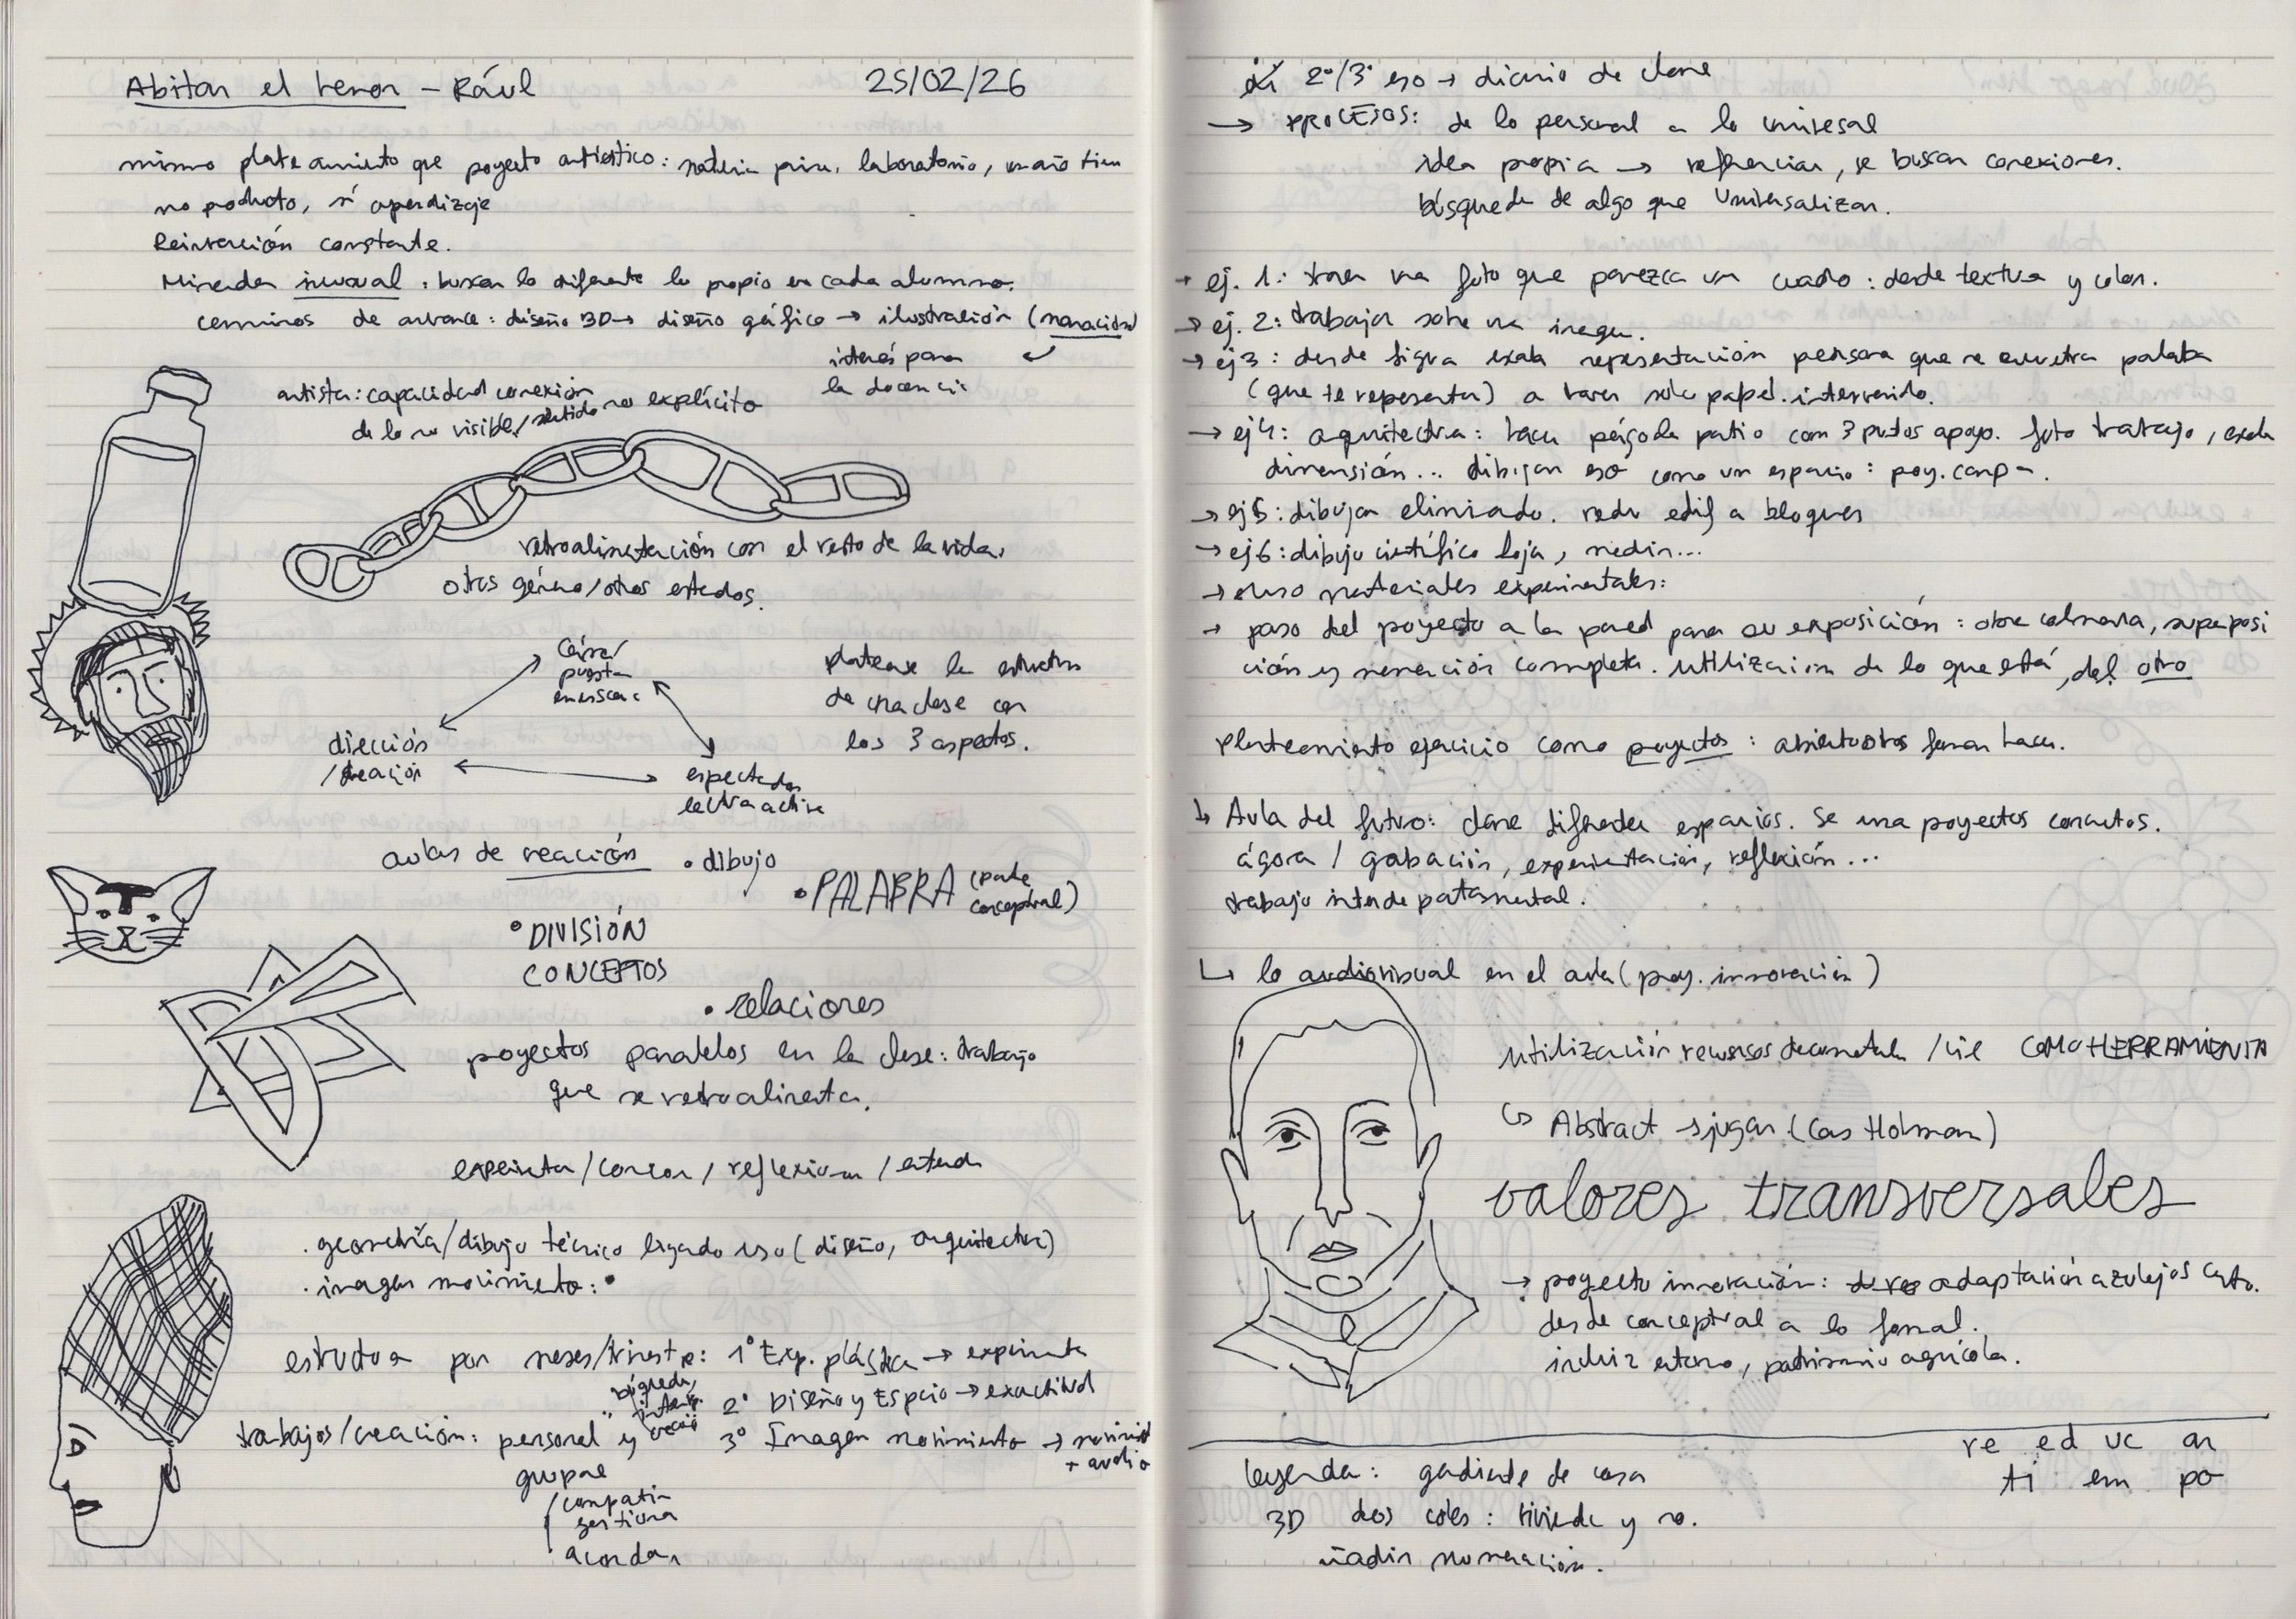 Abitar el temor - Rául 25/02/26
mismo plateamiento que poyecto artístico: materia prim, laboratorio, 
no producto, sí aperdizaje
Reinvención constante.
Mirada inusual: buscar lo diferente lo propio en cada alumno.
caminos de avance: diseño 3D → diseño gáfico → ilustración (narración)
interés para
la docencia
artista: capacidad conexión
de lo no visible/sentido no explícito
retroalimentación con el resto de la vida,
otros género/otros estados.
cámara/
puesta
en escena
dirección
/creación
espectador
lectura activa
platearse la estructura
de una clase con
los 3 aspectos.
aulas de creación
• dibujo
• PALABRA (parte
conceptual)
• DIVISIÓN
CONCEPTOS
• relaciones
poyectos paralelos en la clase: trabajo
que se retroalimenta.
experimentar/conocer/reflexionar/entender
. geometría/dibujo técnico ligado uso (diseño, arquitectura)
. imagen movimiento: •
estructura por meses/trimestre: 1º Exp. plástica → experimenta
2º Diseño y Espacio → exactitud
3º Imagen movimiento → movimiento
+ audio
trabajos/creación: personal y
búsqueda,
grupal
compatir
gestionar
acordar
2º/3º eso → diario de clase
→ PROCESOS: de lo personal a lo universal
idea propia → referencias, se buscan conexiones.
búsqueda de algo que universalizar.
→ ej. 1: traer una foto que parezca un cuadro: desde textura y color.
→ ej. 2: trabajar sobre una imagen.
→ ej 3: desde figura exacta representación persona que se encuentra palabra
(que te representa) a hacer sobre papel intervenido.
→ ej 4: arquitectura: hacer pérgola patio con 3 putos apoyo. foto trabajo, 
dimensión... dibujar eso como un espacio: poy.
→ ej 5: dibujar eliminado. redu edif a bloques
→ ej 6: dibujo científico hoja, medir...
→ uso materiales experimentales:
→ paso del poyecto a la pared para su exposición: obra colmena, superposi
ción y narración completa. utilización de lo que está, del otro
Planteamiento ejercicio como poyectos: abiertos otras formas hacer.
↳ Aula del futuro: clase diferentes espacios. Se una poyectos concretos.
ágora / grabación, experimentación, reflexión...
trabajo interdepartamental.
↳ lo audiovisual en el aula (poy. innovación)
utilización recursos documentales /cie COMO HERRAMIENTA
↳ Abstract → jugar (Cas Holman)
valores transversales
→ poyecto innovación: adaptación azulejos
desde conceptual a lo formal.
incluir entorno, patrimonio agrícola.
re ed uc ar
ti em po
leyenda: gradiente de
3D dos coles: vivienda y no.
añadir numeración.